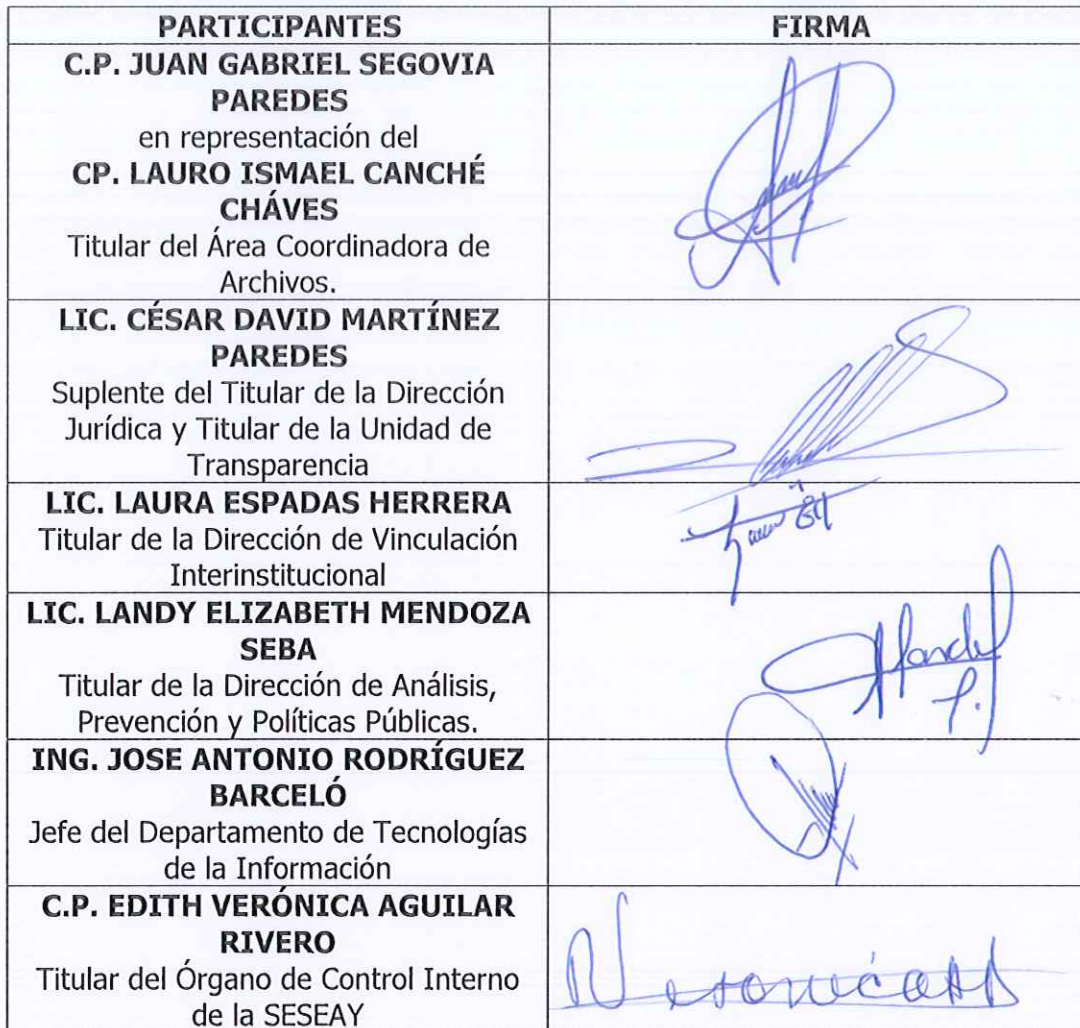 PARTICIPANTES FIRMA
C.P. JUAN GABRIEL SEGOVIA
PAREDES
en representación del
CP. LAURO ISMAEL CANCHÉ
CHÁVES
Titular del Área Coordinadora de
Archivos.
LIC. CÉSAR DAVID MARTÍNEZ
PAREDES
Suplente del Titular de la Dirección
Jurídica y Titular de la Unidad de
Transparencia
LIC. LAURA ESPADAS HERRERA
Titular de la Dirección de Vinculación
Interinstitucional
LIC. LANDY ELIZABETH MENDOZA
SEBA
Titular de la Dirección de Análisis,
Prevención y Políticas Públicas.
ING. JOSE ANTONIO RODRÍGUEZ
BARCELÓ
Jefe del Departamento de Tecnologías
de la Información
C.P. EDITH VERÓNICA AGUILAR
RIVERO
Titular del Órgano de Control Interno
de la SESEAY